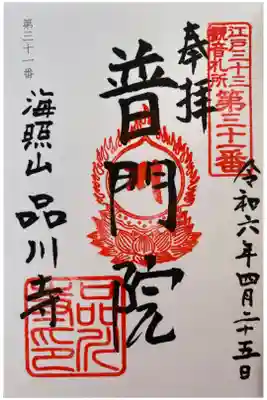 江戸三十三
観音札所
第三十一番
奉拝
令和六年四月二十五日
普門院
第三十一番
海照山 品川寺
品川
寺印